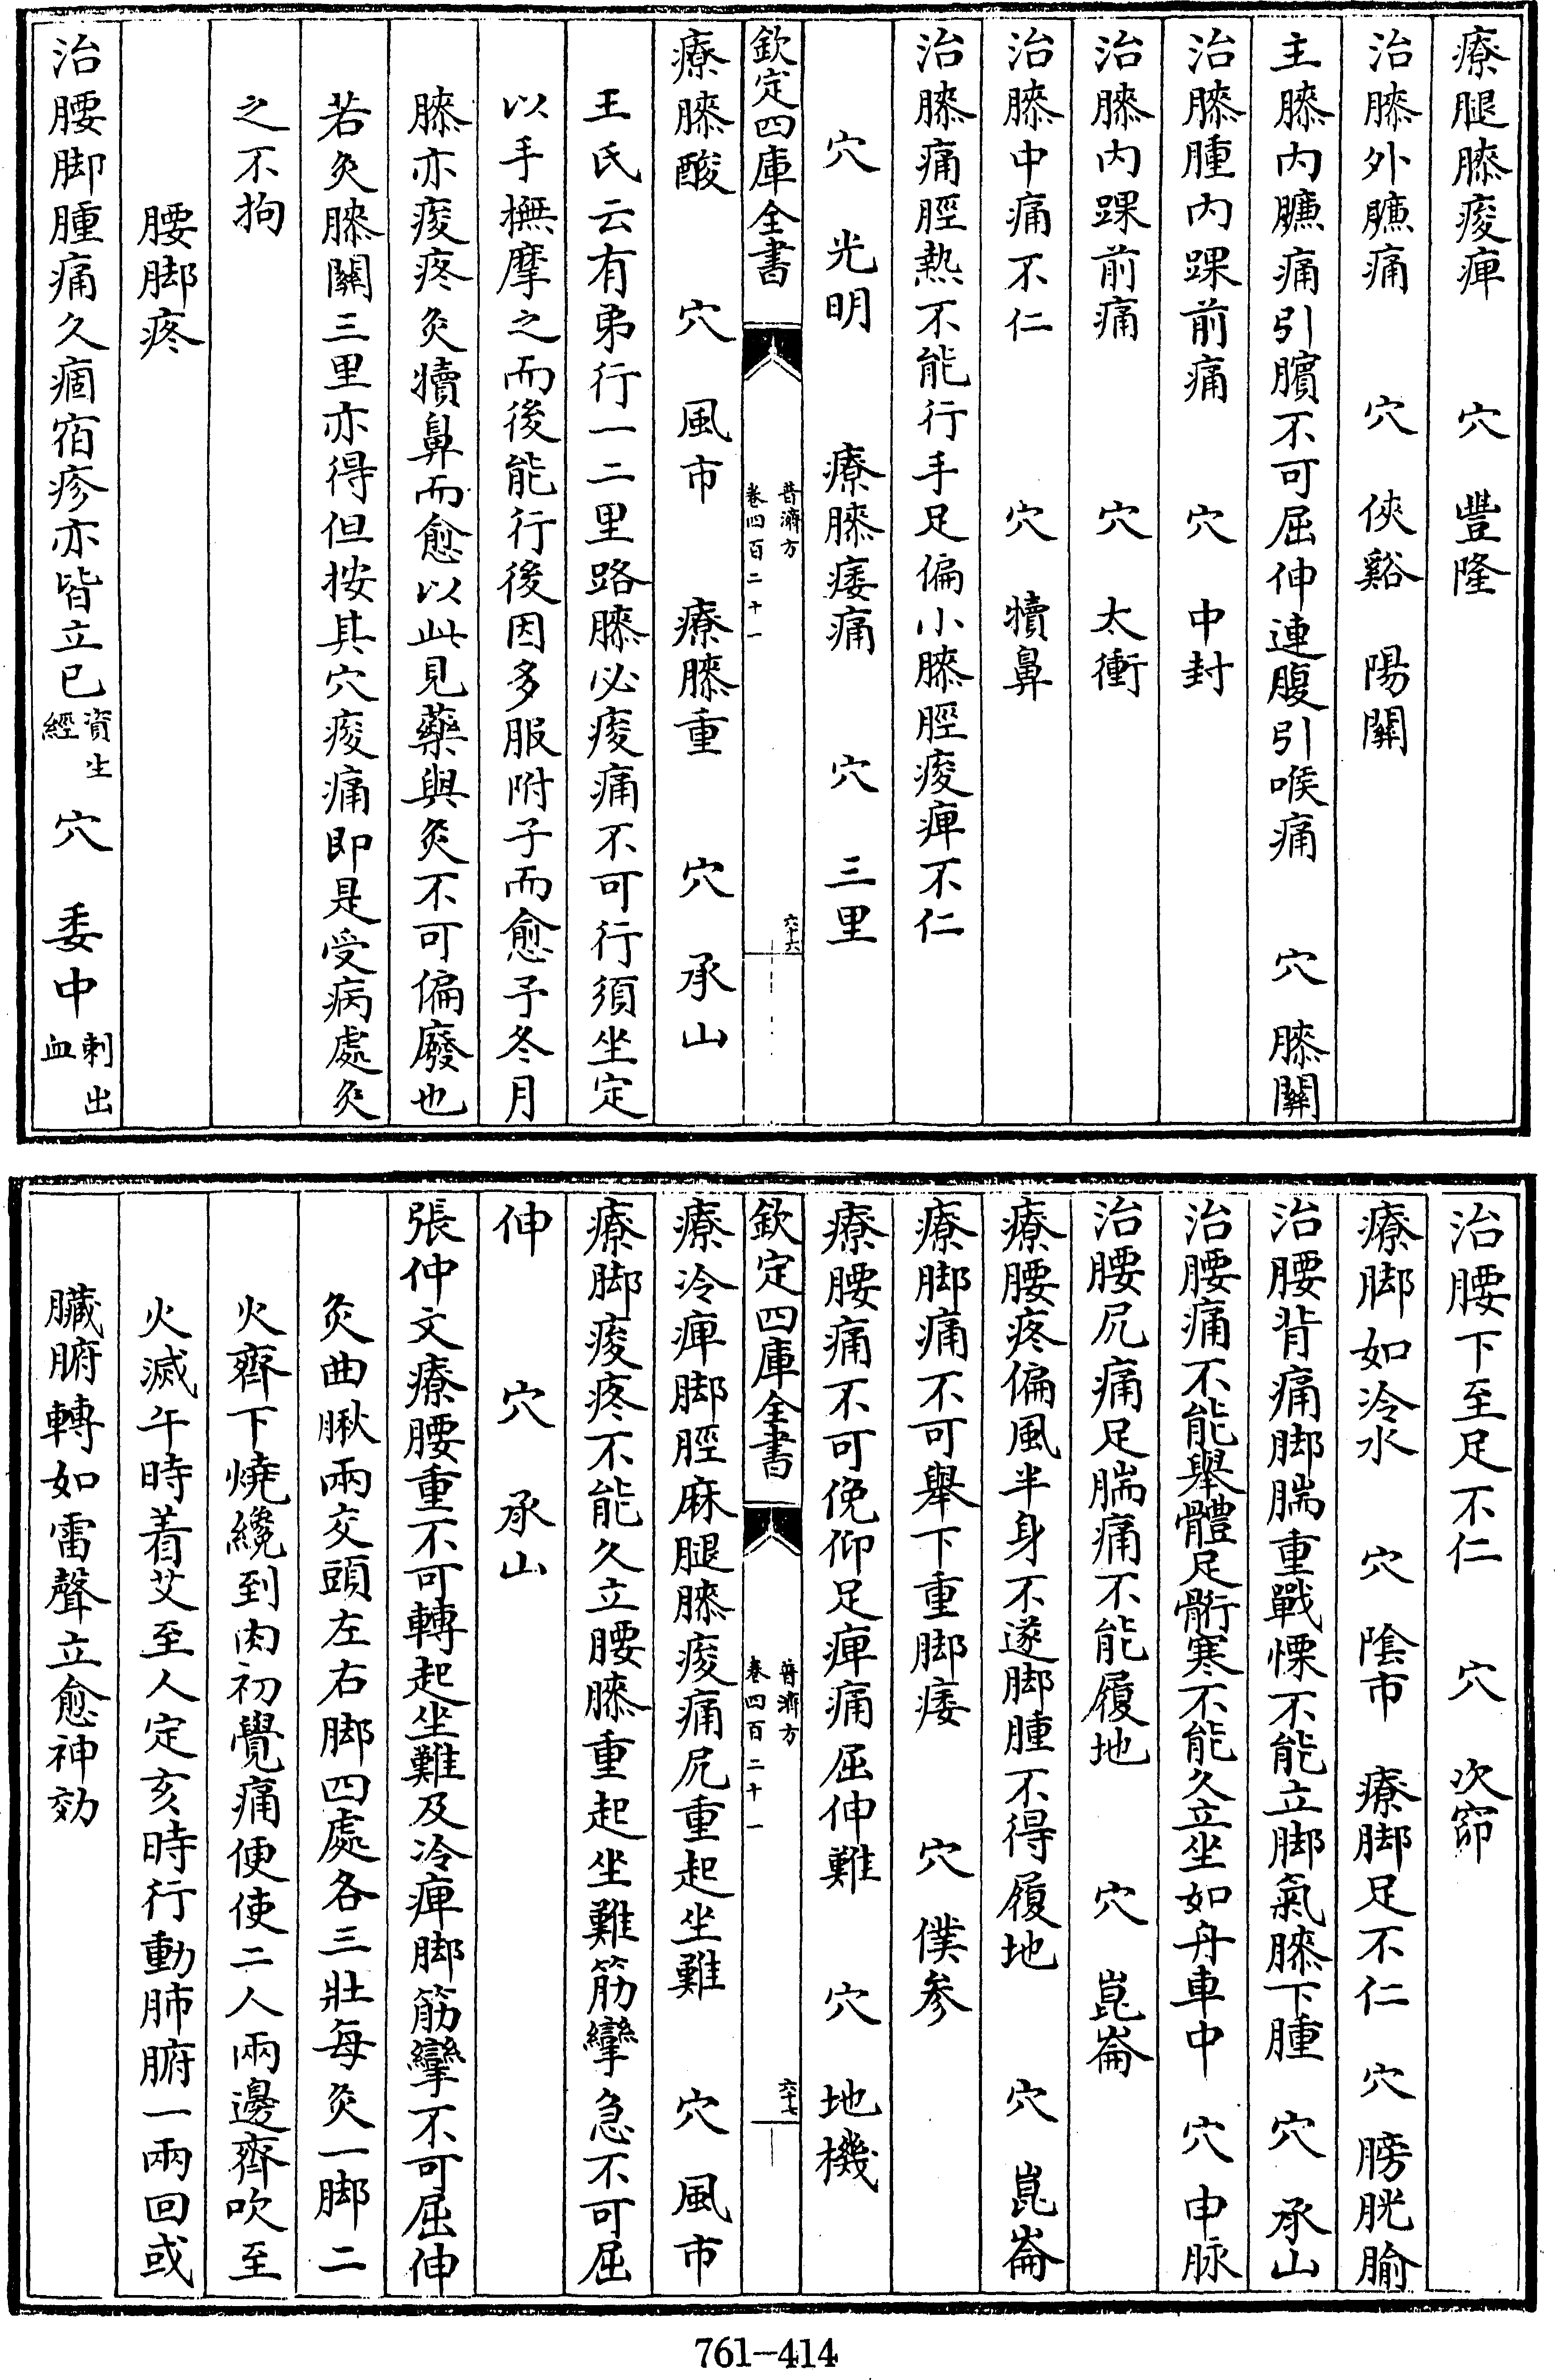 療腿膝痠痺　穴　豐隆
治膝外臁痛　穴　俠谿　陽關
主膝内臁痛引臏不可屈伸連腹引喉痛　穴　膝關
治膝腫内踝前痛　穴　中封
治膝内踝前痛　穴　太衝
治膝中痛不仁　穴　犢鼻
治膝痛脛熱不能行手足偏小膝脛痠痺不仁
穴　光明　療膝痿痛　穴　三里
欽定四庫全書　普濟方　卷四百二十一　六十六
療膝酸　穴　風市　療膝重　穴　承山
王氏云有弟行一二里路膝必痠痛不可行須坐定
以手撫摩之而後能行後因多服附子而愈予冬月
膝亦痠疼灸犢鼻而愈以此見藥與灸不可偏廢也
若灸膝關三里亦得但按其穴痠痛即是受病處灸
之不拘
腰脚疼
治腰脚腫痛久痼宿疹亦皆立已資生經　穴　委中刺出血
治腰下至足不仁　穴　次窌
療脚如冷水　穴　陰市　療脚足不仁　穴　膀胱腧
治腰背痛脚腨重戰慄不能立脚氣膝下腫　穴　承山
治腰痛不能舉體足䯒寒不能久立坐如舟車中　穴　申脉
治腰尻痛足腨痛不能履地　穴　崑崙
療腰疼偏風半身不遂脚腫不得履地　穴　崑崙
療脚痛不可舉下重脚痿　穴　僕參
療腰痛不可俛仰足痺痛屈伸難　穴　地機
欽定四庫全書　普濟方　卷四百二十一　六十七
療冷痺脚脛麻腿膝痠痛尻重起坐難　穴　風市
療脚痠疼不能久立腰膝重起坐難筋攣急不可屈
伸　穴　承山
張仲文療腰重不可轉起坐難及冷痺脚筋攣不可屈伸
灸曲䐐兩交頭左右脚四處各三壯每灸一脚二
火齊下燒纔到肉初覺痛便使二人兩邊齊吹至
火滅午時着艾至人定亥時行動肺腑一兩回或
臟腑轉如雷聲立愈神効
761-414